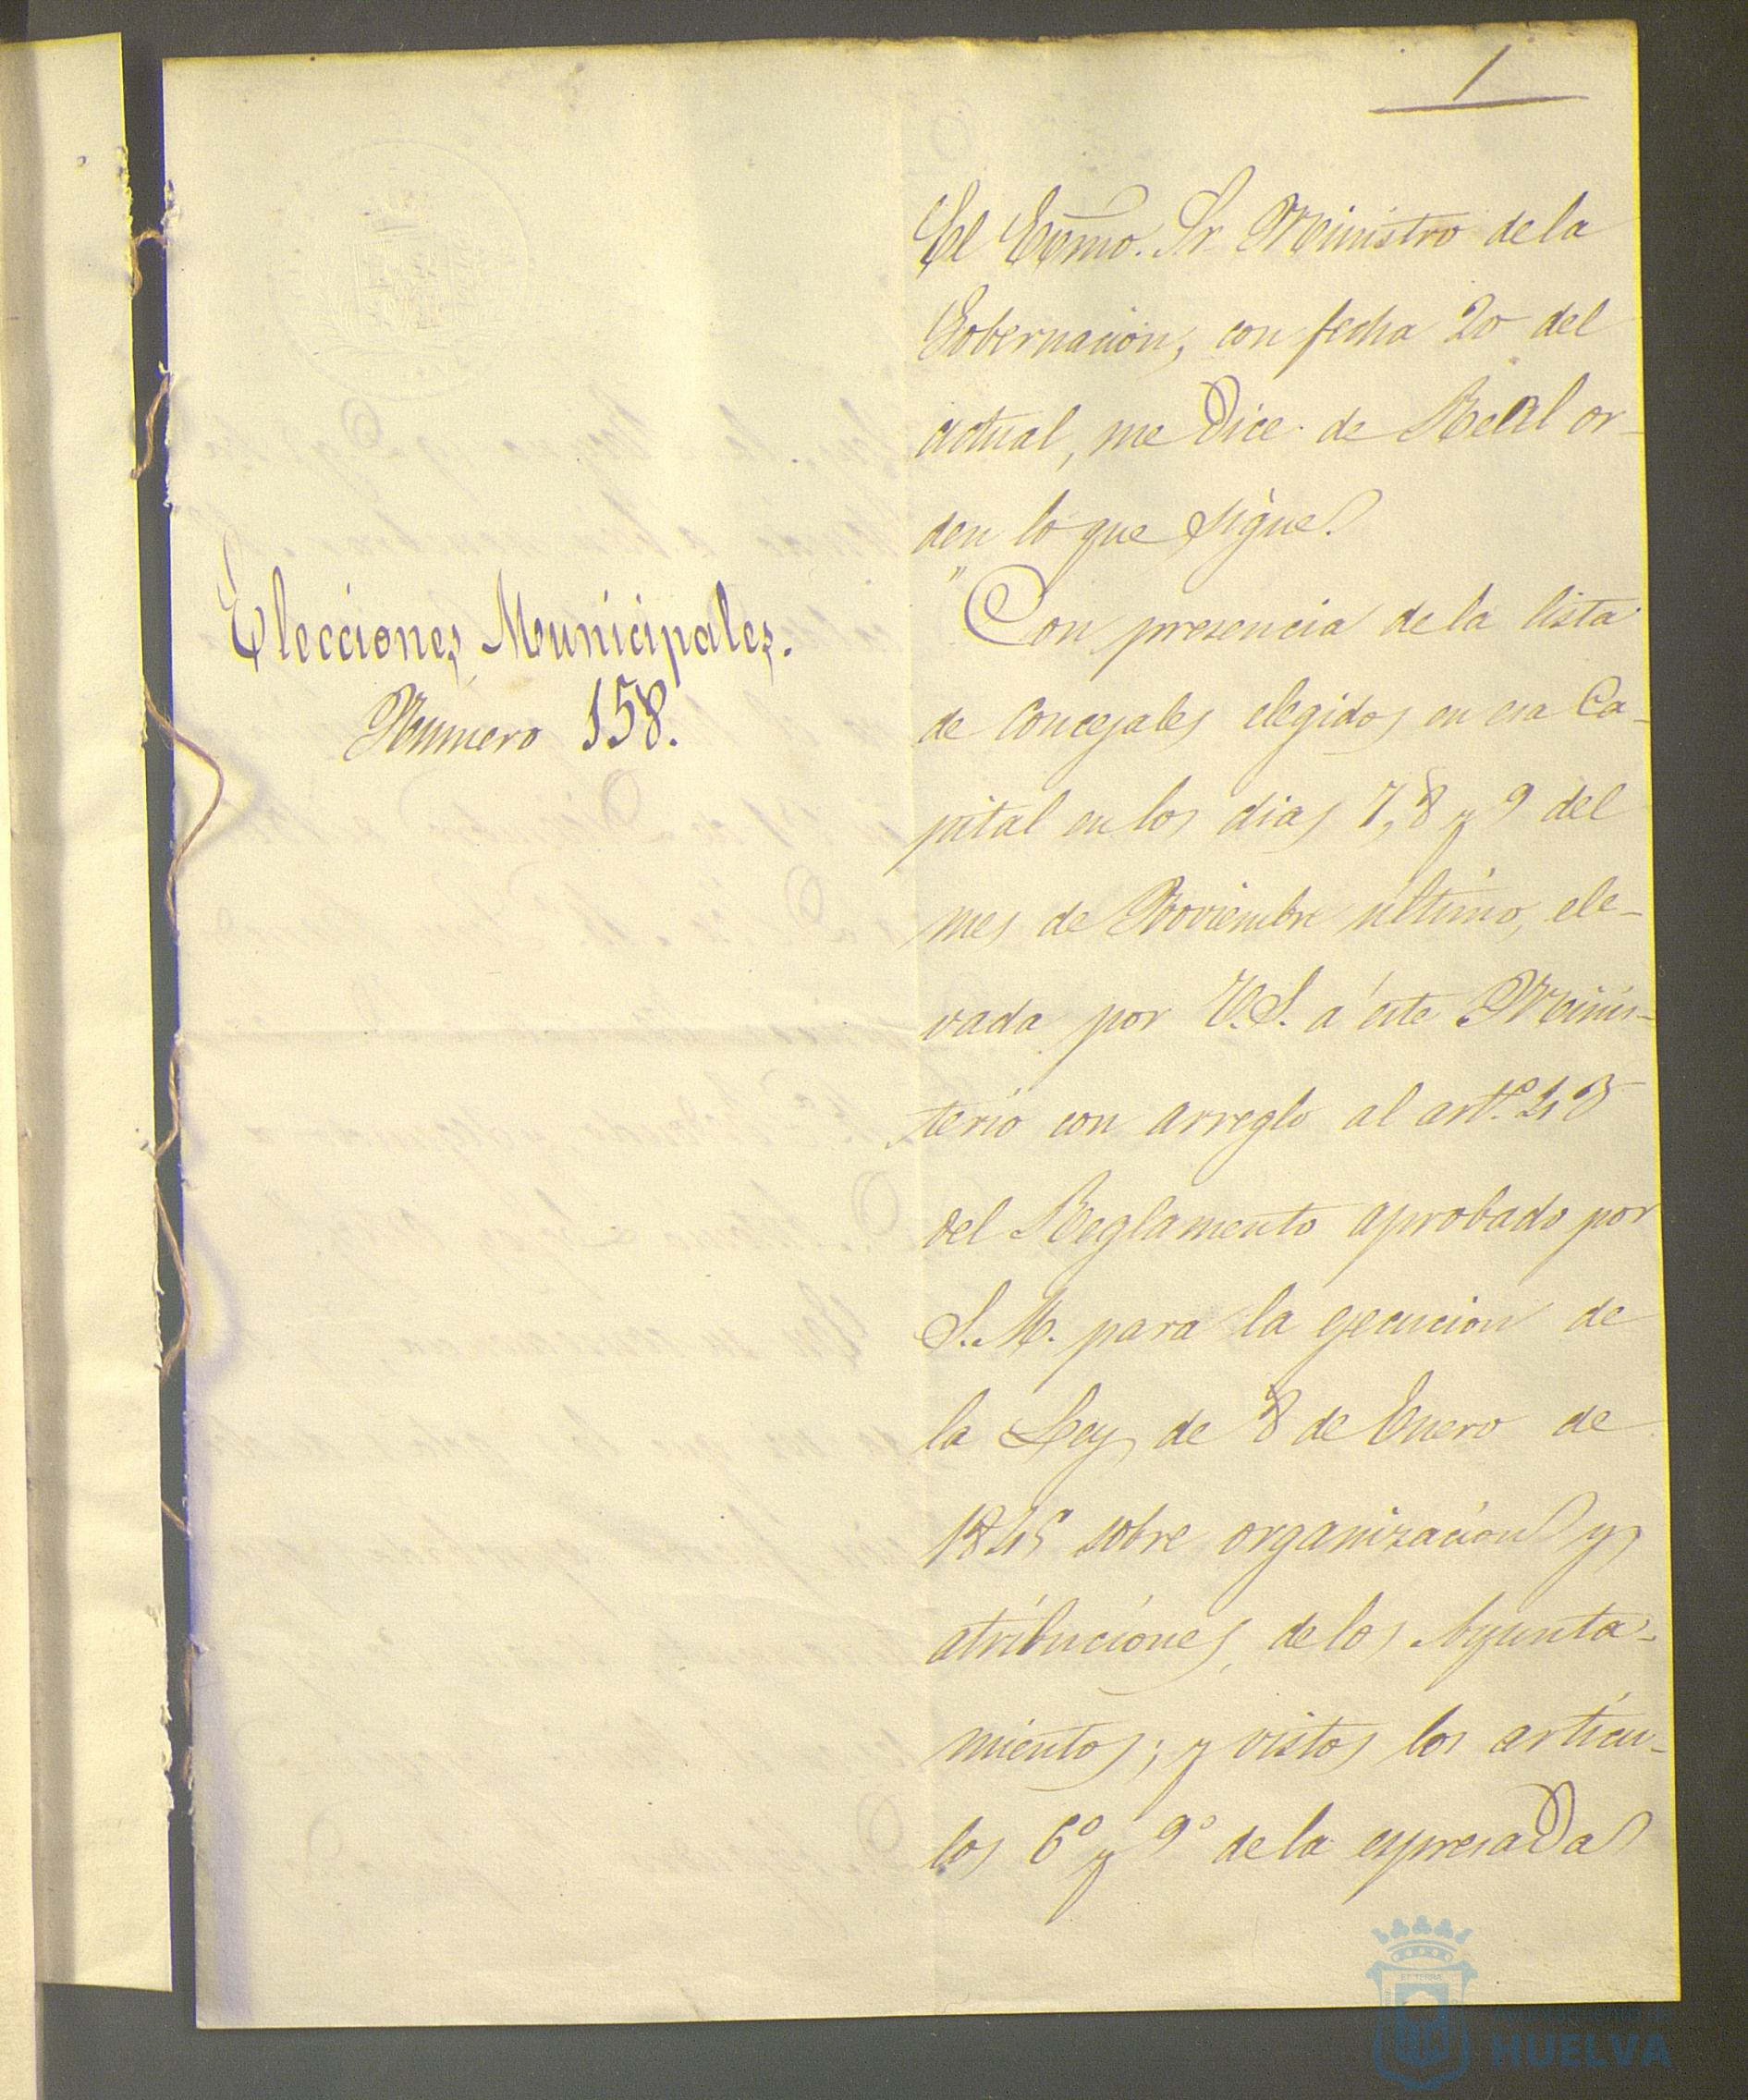 1
Elecciones Municipales.
Numero 158.
El Exmo. Sr. Ministro de la
Gobernacion, con fecha 20 del
actual, me dice de Real or-
den lo que sigue.
"Con presencia de la lista
de Concejales elegidos en esa Ca-
pital en los dias 7, 8 y 9 del
mes de Noviembre último, ele-
vada por V.S. á este Minis-
terio con arreglo al artº. 43
del Reglamento aprobado por
S.M. para la ejecucion de
la Ley de 8 de Enero de
1845 sobre organizacion y
atribuciones de los Ayunta-
mientos; y vistos los artícu-
los 6º y 9º de la espresada
HUELVA